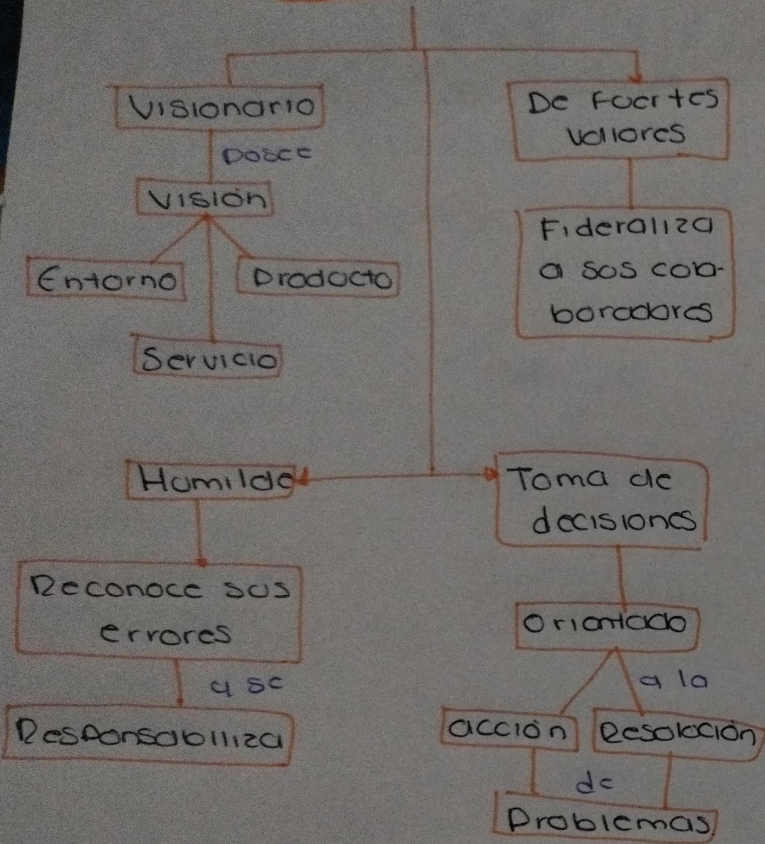 Visionario
posee
Visión
Entorno
Producto
Servicio
De Fuertes
valores
Fideraliza
a sus cola-
boradores
Humilde
Reconoce sus
errores
y se
Responsabiliza
Toma de
decisiones
Orientado
a la
acción
Resolución
de
Problemas